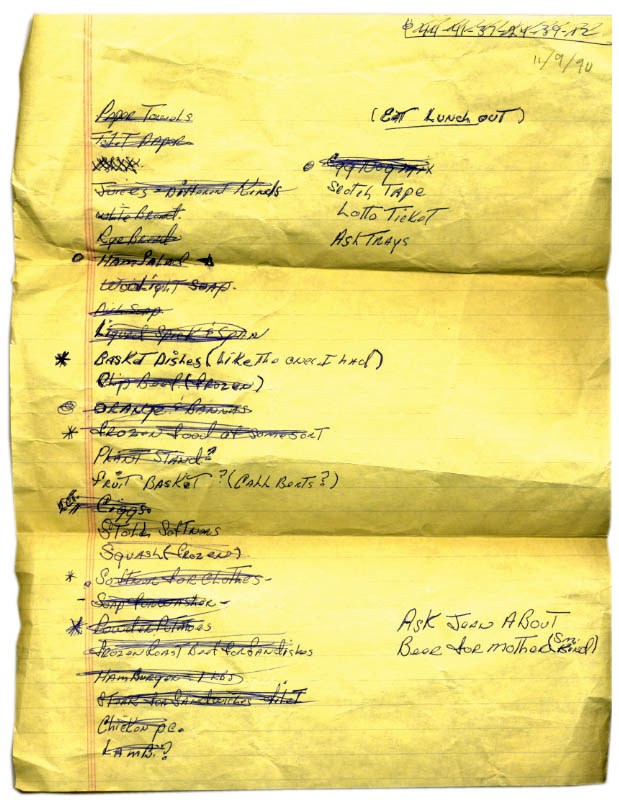 11/9/90
Paper Towels
Toilet Paper
Juices - Different Kinds
White Bread
Rye Bread
Ham Salad
Woolight Soap
Dish Soap
Liquid Spick & Span
Basket Dishes (Like the ones I had)
Chip Beef (Frozen)
Orange & Bannas
Frozen Food of Some sort
Plant Stand?
Fruit Basket? (Call Berts?)
Ciggs
Squash (Frozen)
Softner for Clothes -
- Soap
Powder Potatoes
Frozen Roast Beef for
Hamburger -
Steak for Sandwiches
Chicken pc.
Lamb?
(Eat Lunch out)
Egg Nog mix
Scotch Tape
Lotto Ticket
Ash Trays
Ask Jean About
Beer for Mother (Sm. Kind)